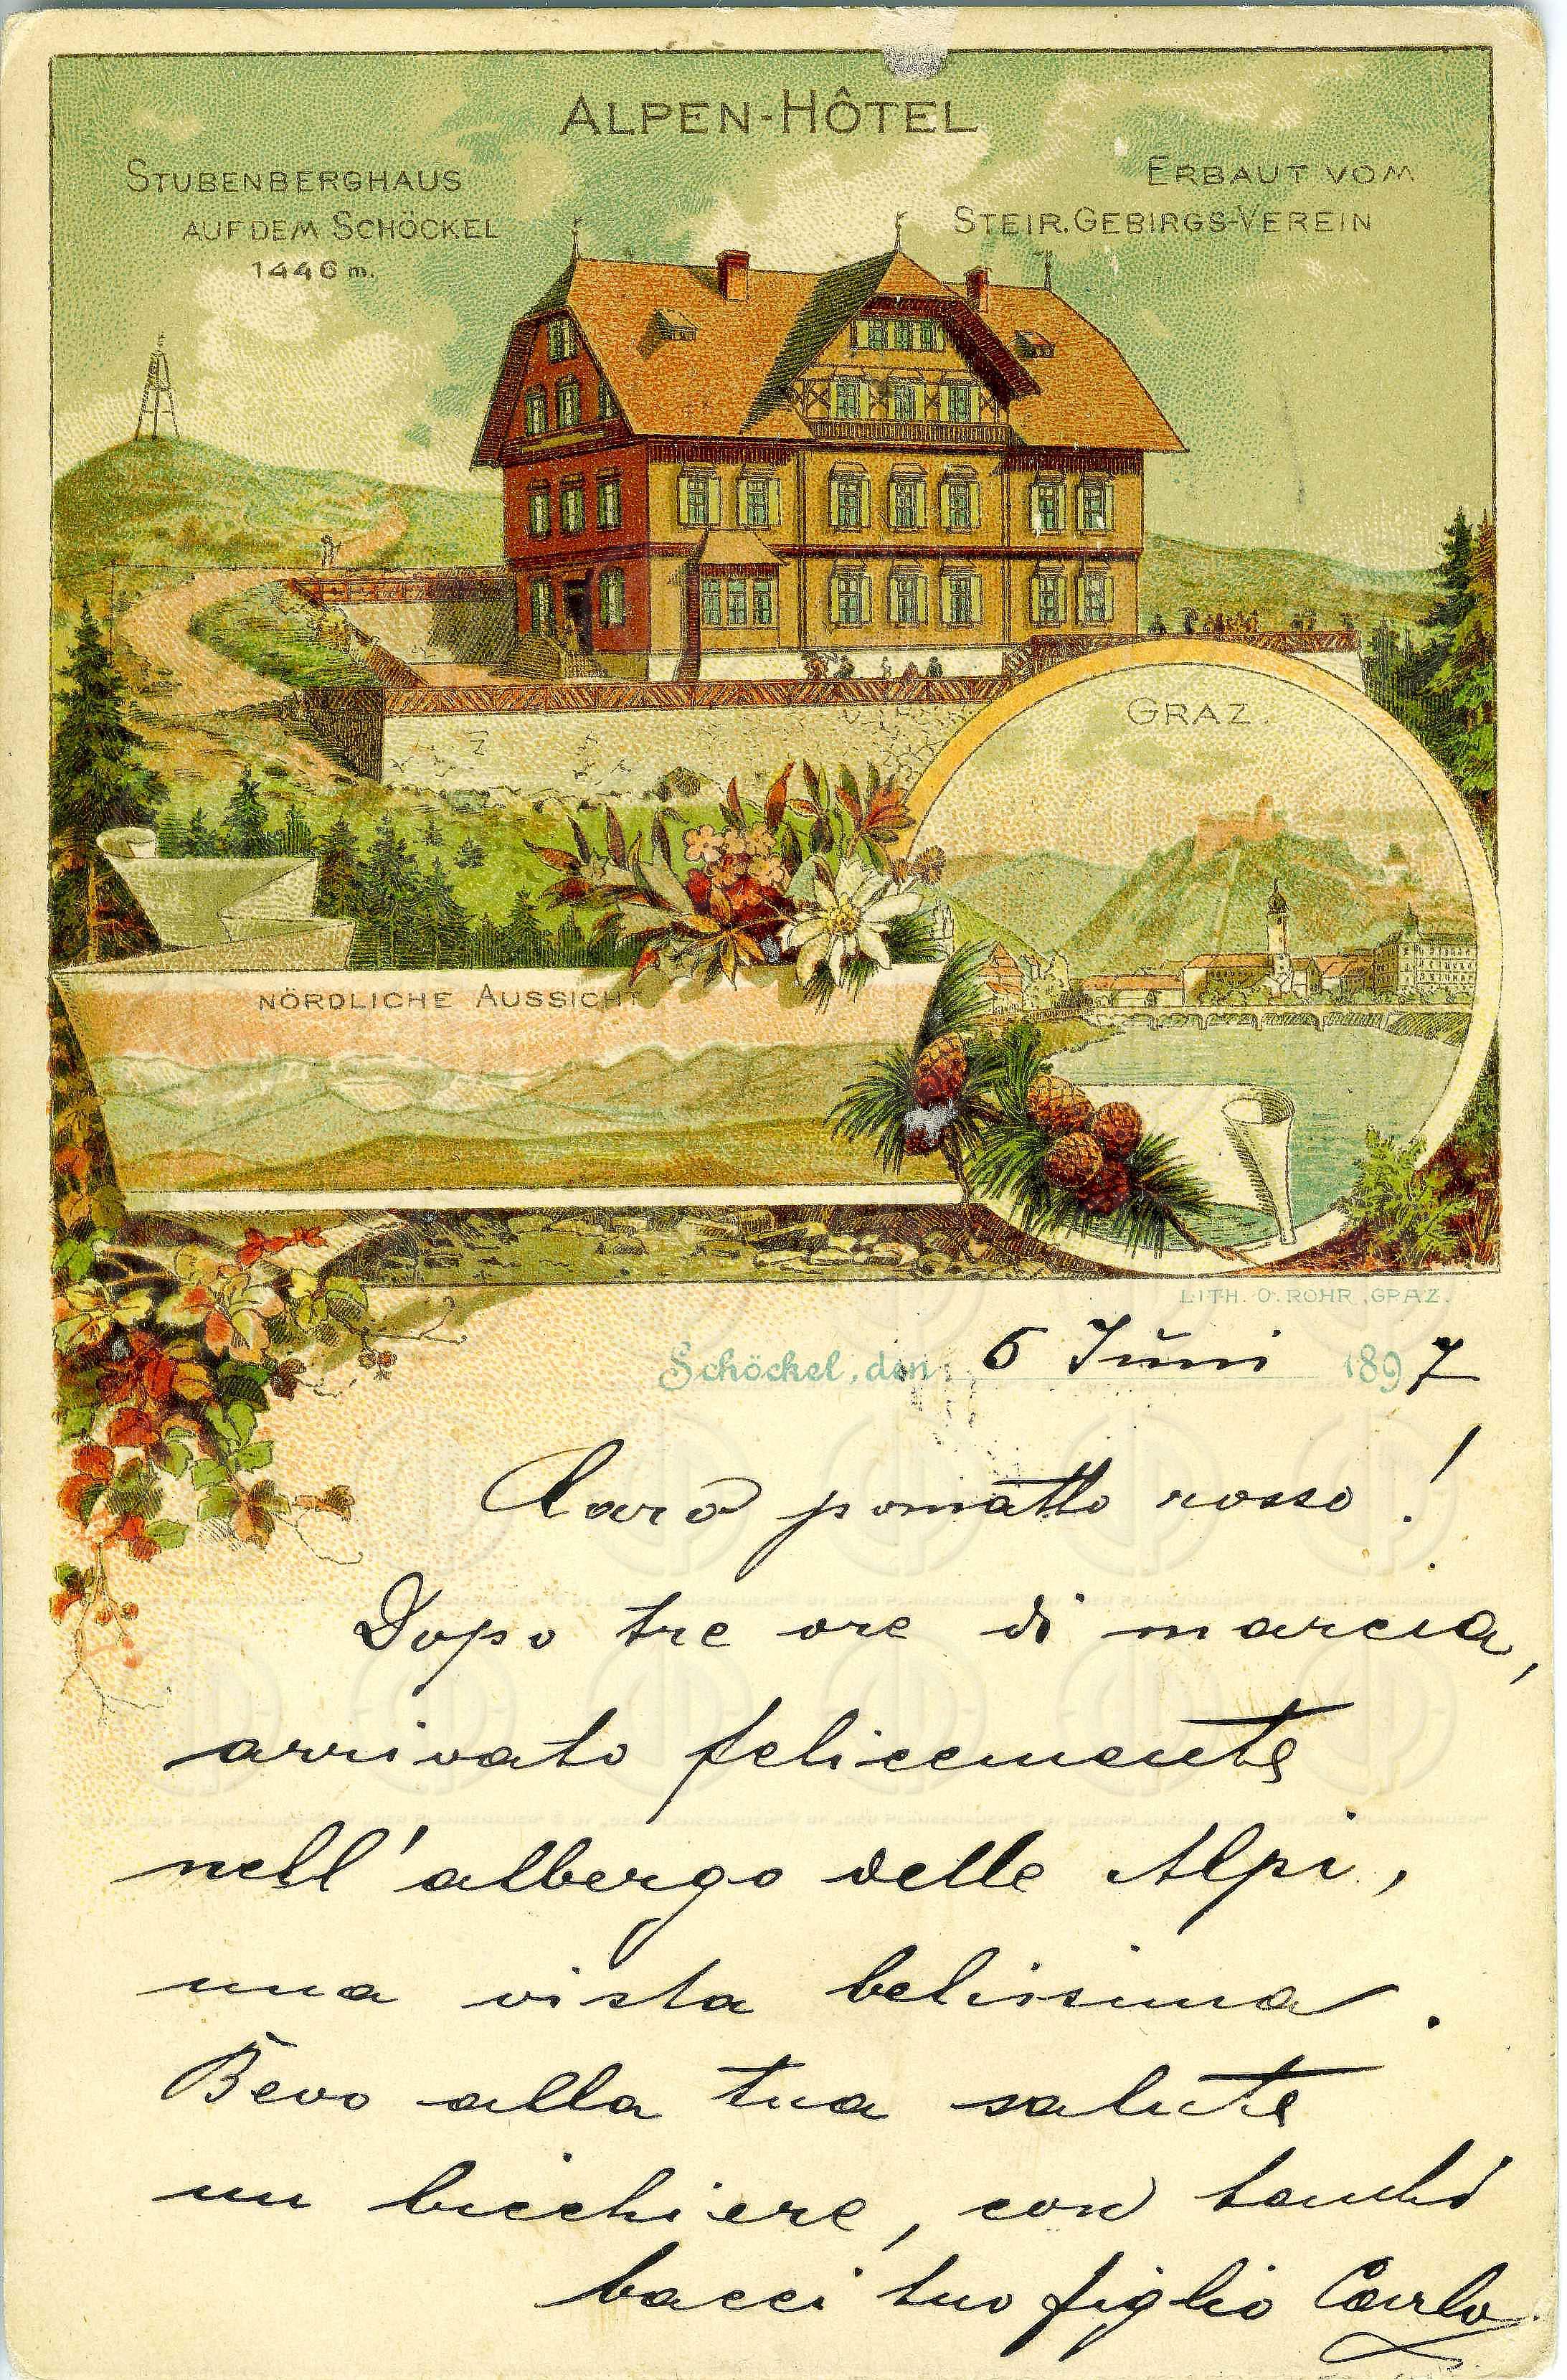 ALPEN-HÔTEL
STUBENBERGHAUS
AUF DEM SCHÖCKEL
1446 m.
ERBAUT VOM
STEIR. GEBIRGS-VEREIN
GRAZ.
NÖRDLICHE AUSSICHT
LITH. O. ROHR, GRAZ.
Schöckel, den 6 Juni 1897
Caro pomatto rosso!
Dopo tre ore di marcia,
arrivato felicemente
nell'albergo delle Alpi,
una vista belissima.
Bevo alla tua salute
un bicchiere, con
bacci tuo figlio Carlo